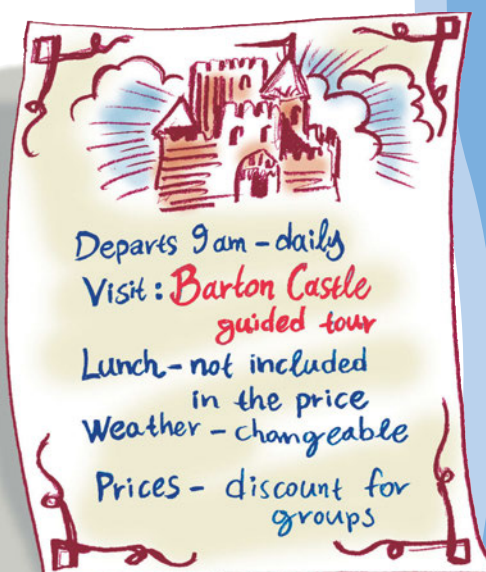 Departs 9am – daily
Visit : Barton Castle
guided tour
Lunch – not included
in the price
Weather – changeable
Prices – discount for
groups